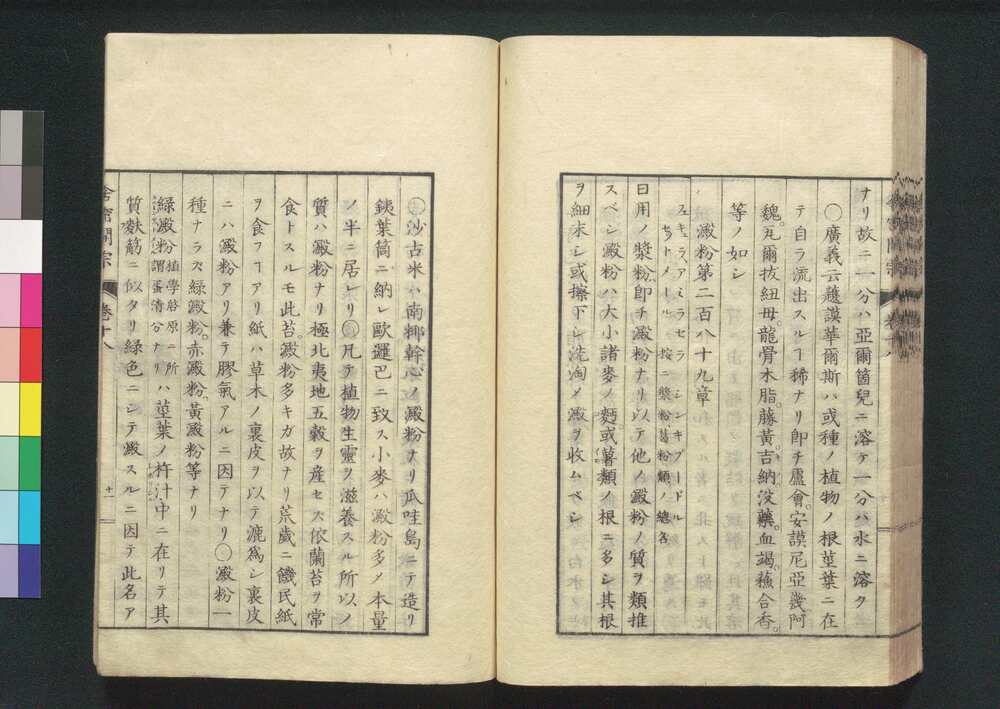 ナリ故ニ一分ハ亞爾箇兒ニ溶ケ一分ハ水ニ溶ク
○廣義云護謨華爾斯ハ或種ノ植物ノ根莖葉ニ在
テ自ラ流出スルヿ稀ナリ即チ盧會。安謨尼亞幾阿
魏。瓦爾抜紐母。龍骨木脂。藤黃。吉納。沒藥。血竭。蘇合香。
等ノ如シ
澱粉第二百八十九章
日用ノ漿粉即チ澱粉ナリ以テ他ノ澱粉ノ質ヲ類推
スベシ澱粉ハ大小諸麥ノ麪或薯類ノ根ニ多シ其根
ヲ細末シ或擦下シ洗淘メ澱ヲ收ムベシ
○沙古米ハ南椰幹心ノ澱粉ナリ瓜哇島ニテ造リ
銕葉筒ニ納レ歐邏巴ニ致ス小麥ハ澱粉多メ本量
ノ半ニ居レリ○凡テ植物生靈ヲ滋養スル所以ノ
質ハ澱粉ナリ極北夷地五穀ヲ産セス依蘭苔ヲ常
食トスルモ此苔。澱粉多キガ故ナリ荒歲ニ饑民紙
ヲ食フヿアリ紙ハ草木ノ裏皮ヲ以テ漉爲シ裏皮
ニハ澱粉アリ兼テ膠氣アルニ因テナリ○澱粉一
種ナラス綠澱粉。赤澱粉、黃澱粉等ナリ
綠澱粉植學啓原ニ所謂蛋清分ナリハ莖葉ノ杵汁中ニ在リテ其
質麩筋ニ似タリ綠色ニシテ澱スルニ因テ此名ア
舍密開宗
卷十八
十一